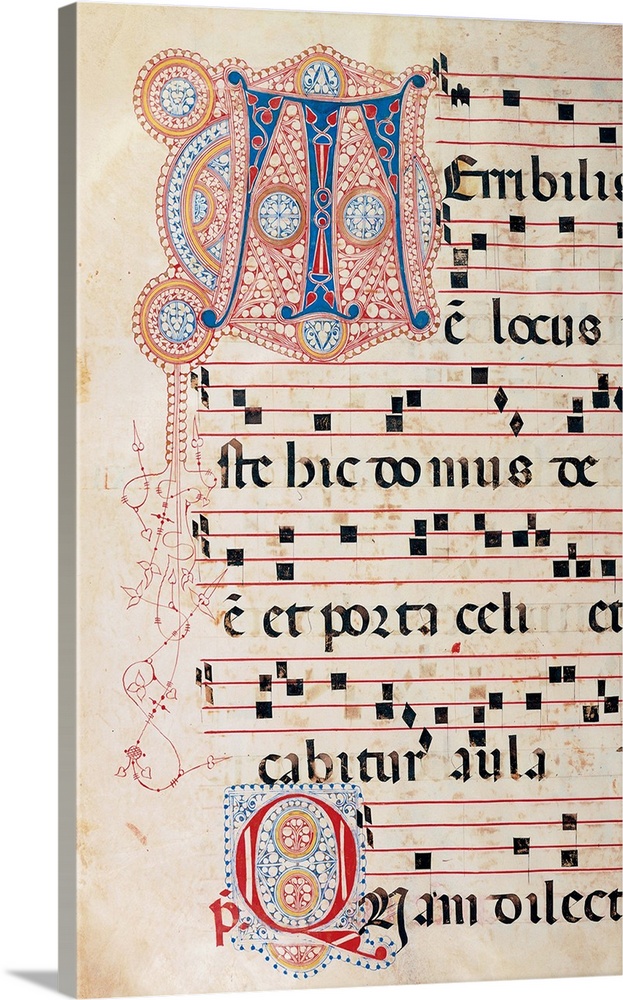 TErribilis
ē locus
iste hic domus de
ē et porta celi et
cabitur aula
p̄. QUam dilect